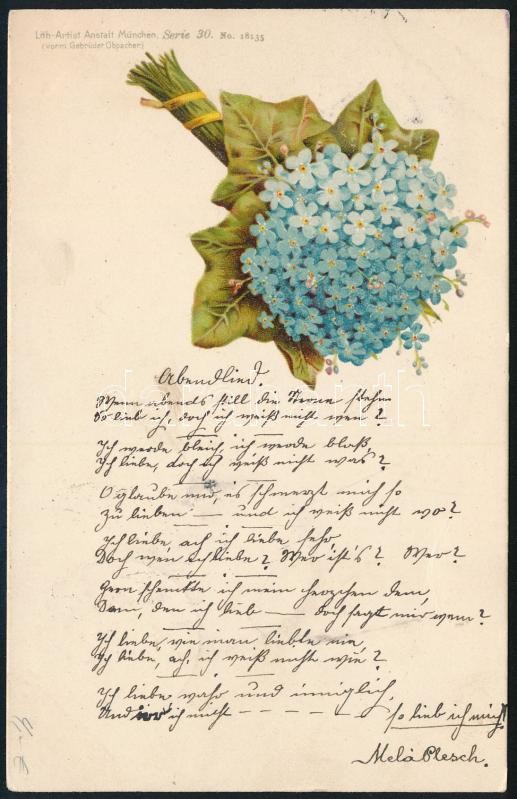 Lith-Artist Anstalt München, Serie 30. No. 18135
(vorm. Gebrüder Obpacher)
Abendlied.
Wenn abends still die Sterne stehn
So lieb ich, doch ich weiß nicht wen?
Ich werde bleich, ich werde blaß,
Ich liebe, doch ich weiß nicht was?
O glaube mir, es schmerzt mich so
zu lieben — und ich weiß nicht wo?
Ich liebe, ach ich liebe sehr
Doch wen ich liebe? Wer ist's? Wer?
Gern schenkte ich mein Herzchen dem,
Dem, den ich lieb — doch sagt mir wem?
Ich liebe, wie man liebte nie,
Ich liebe, ach, ich weiß nicht wie?
Ich liebe wahr und inniglich,
Und ich nicht — — — — — so lieb ich mich!
Mela Plesch.